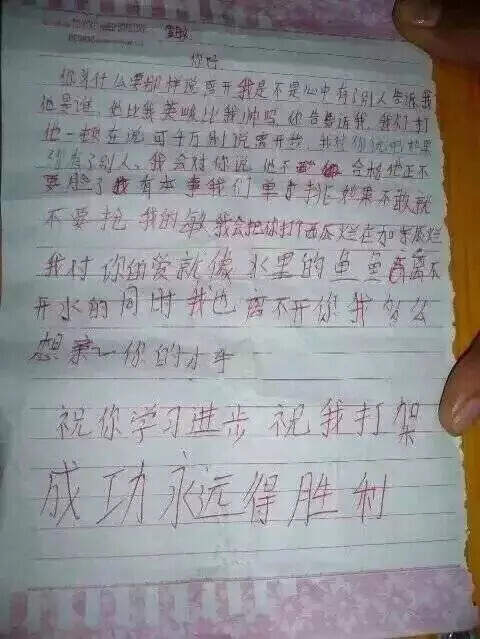 敏
你好
你为什么要那样说离开我是不是心中有了别人告诉我
他是谁，他比我英峻比我帅吗你告诉我，我们打
他一顿在说可千万别说离开我，我对你说啊如果
你有了别人、我会对你说他不 合格他正不
要脸了我有本事我们单挑如果不敢就
不要抢我的敏我会把你打个西瓜烂在和苹瓜烂
我对你的爱就像水里的鱼鱼离不
开水的同时我也离不开你我多么
想亲一你的小手
祝你学习进步祝我打架
成功永远得胜利